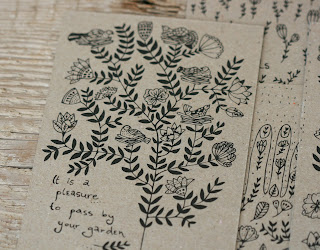 It is a
pleasure
to pass by
your garden